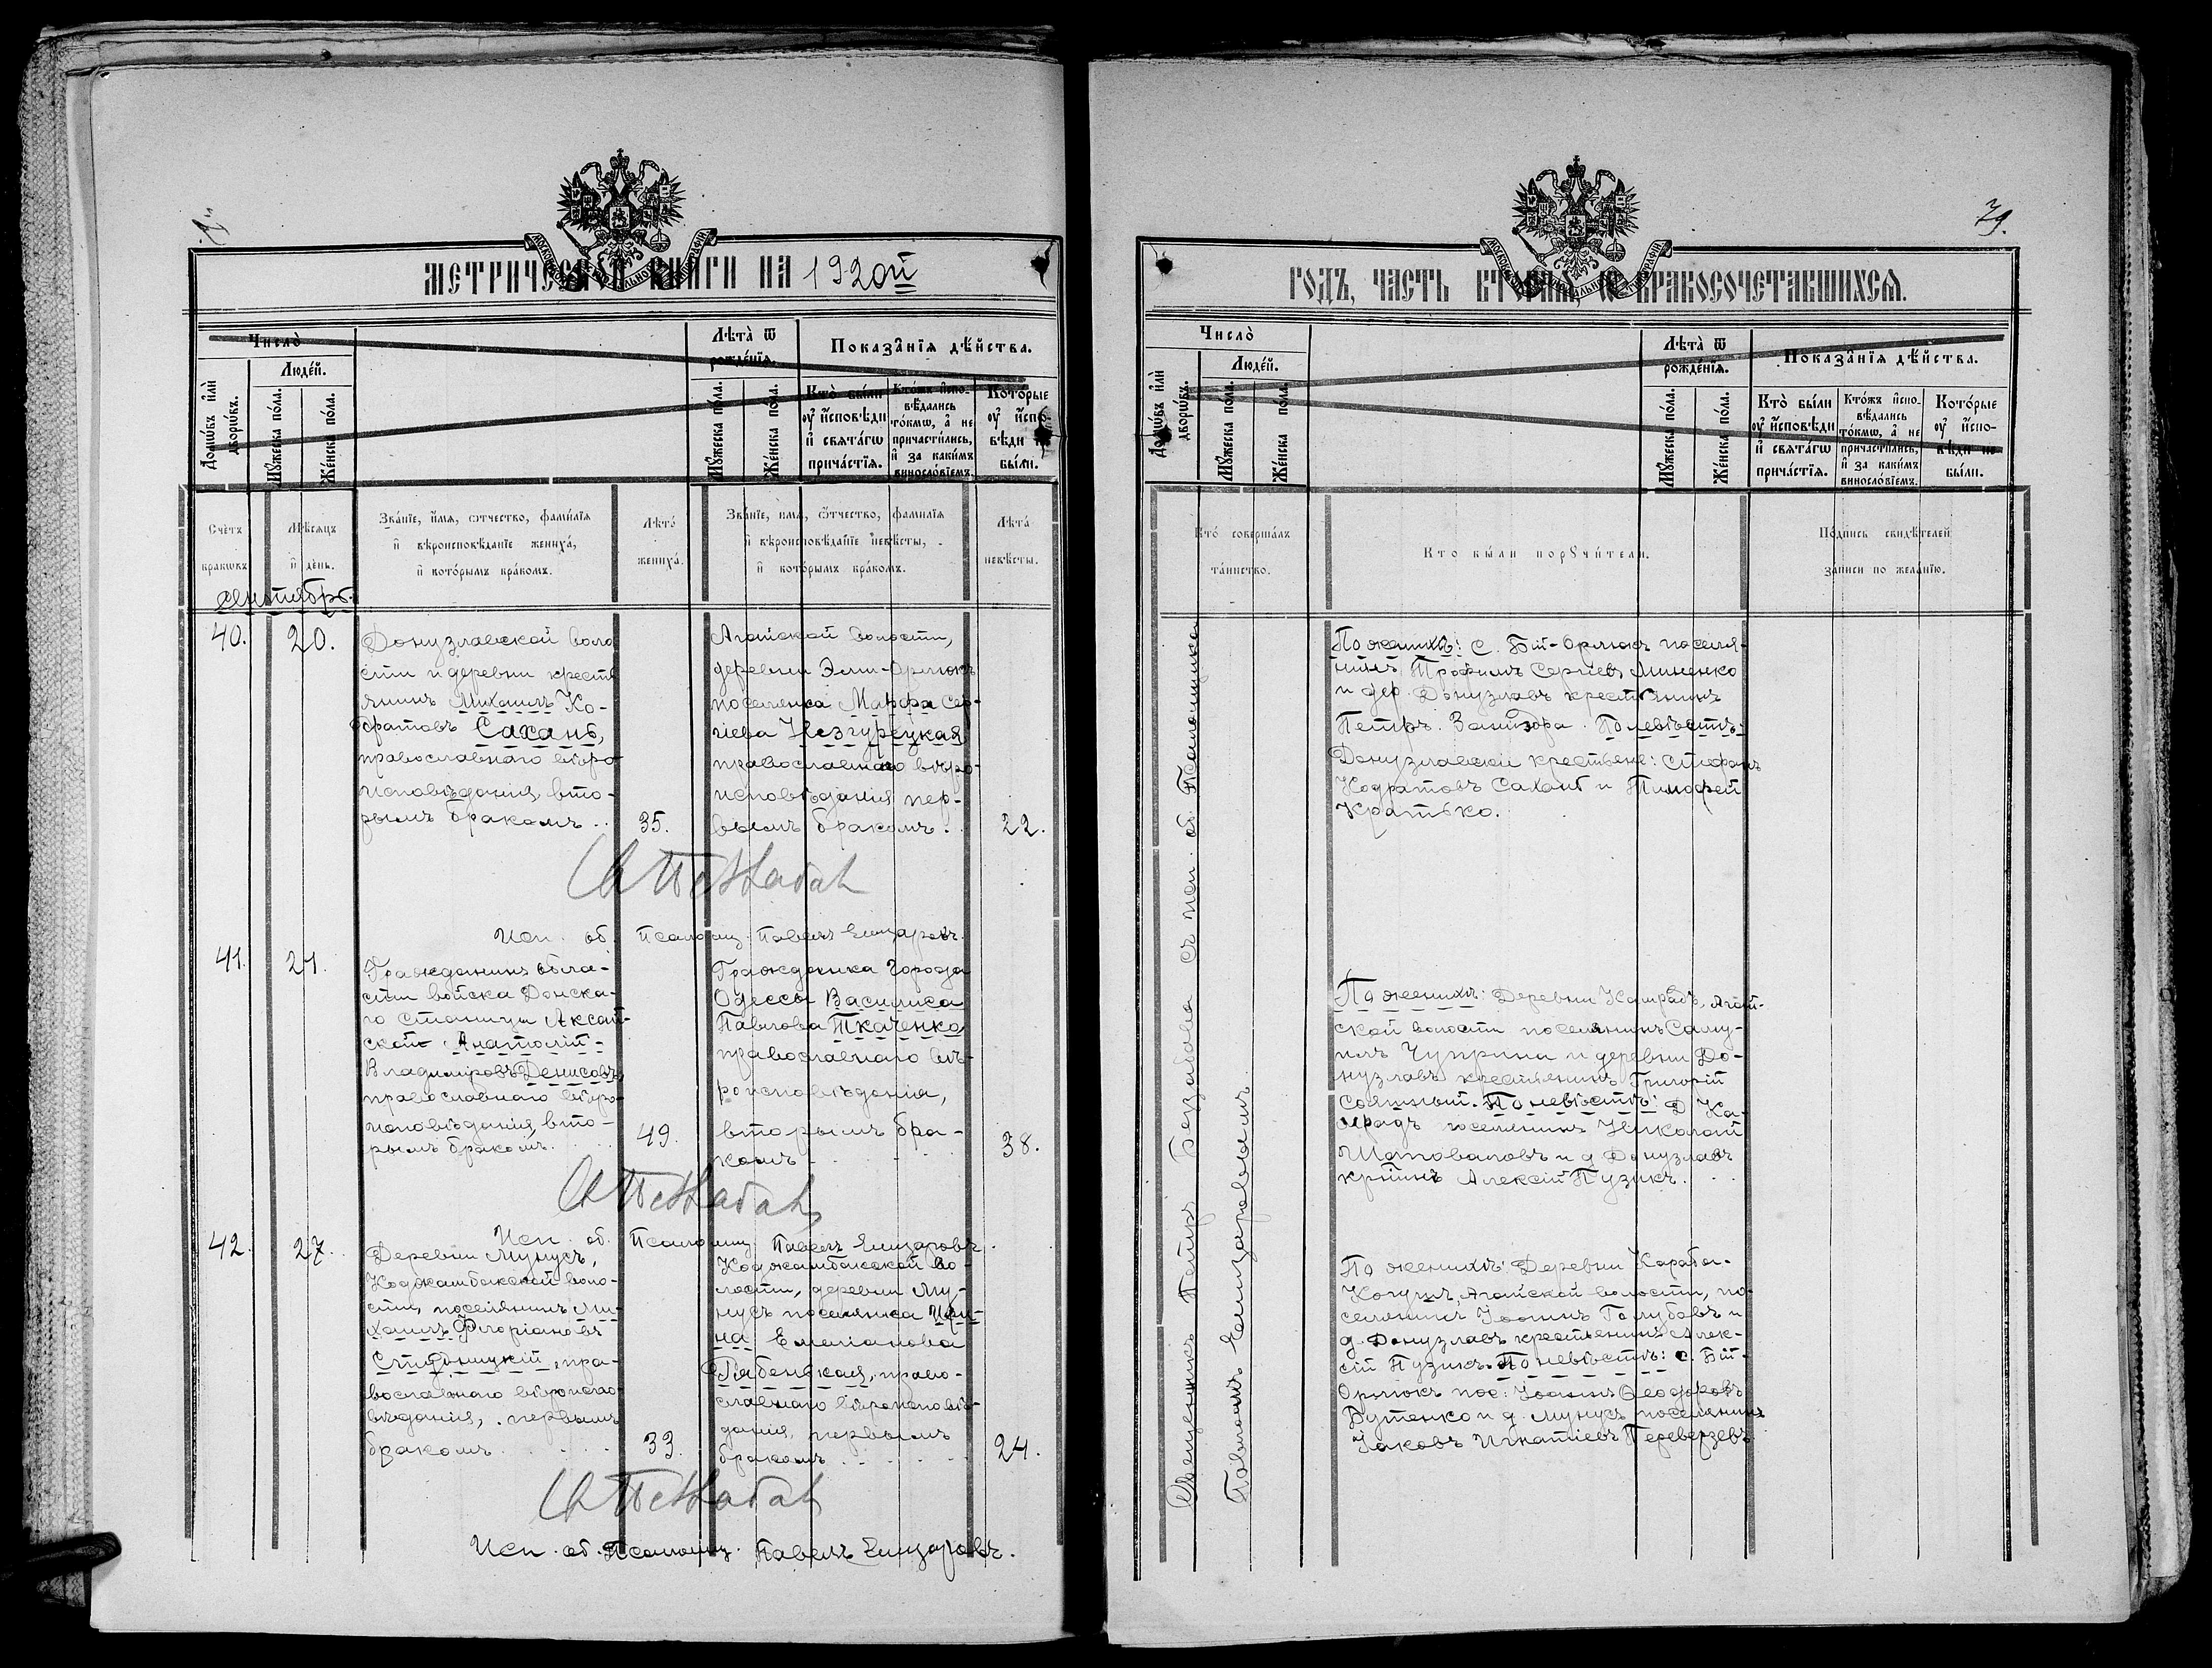 79.
МЕТРИЧЕСКІЯ КНИГИ НА 1920й
Число̀
Люде́й.
Домѡ́въ и҆лѝ дворѡ́въ.
Мꙋ́жеска по́ла.
Же́нска по́ла.
Лѣта̀ ѿ рожде́нїѧ.
Мꙋ́жеска по́ла.
Же́нска по́ла.
Показа̑нїѧ дѣ́йства.
Ктѡ̀ бы́ли
ᲂу҆ и҆сповѣди
и҆ свѧта́гѡ
прича́стїѧ.
Кто́жъ и҆спо-
вѣ́дались
то́кмѡ, а҆ не
причасти́лись,
и҆ за каки́мъ
винослѡ́вїемъ.
Кото́рые
ᲂу҆ и҆спо-
вѣди не
бы́ли.
Счетъ
браковъ
Мѣсяцъ
и день.
Званіе, имя, отчество, фамилія
и вѣроисповѣданіе жениха,
и которымъ бракомъ.
Лѣто
жениха.
Званіе, имя, отчество, фамилія
и вѣроисповѣданіе невѣсты,
и которымъ бракомъ.
Лѣта
невѣсты.
Сентябрь.
40.
20.
Донузлавской воло
сти и деревни кресть
янинъ Михаилъ Ко-
дратовъ Сахань,
православнаго вѣро-
исповѣданія, вто-
рымъ бракомъ..
35.
Агайской волости,
деревни Эли-Орлюкъ
поселенка Марфа Сер-
гіева Незгурецкая
православнаго вѣро-
исповѣданія пер-
вымъ бракомъ..
22.
Исп. об. Псаломщ. Павелъ Елизаровъ.
41.
21.
Гражданинъ обла-
сти войска Донска-
го станицы Аксай-
ской Анатолій
Владиміровъ Денисовъ,
православнаго вѣро-
исповѣданія, вто-
рымъ бракомъ.
49.
Гражданка города
Одессы Василиса
Павлова Ткаченко
православнаго вѣ-
роисповѣданія,
вторымъ бра-
комъ
38.
Исп. об. Псаломщ. Павелъ Елизаровъ.
42.
27.
Деревни Мунусъ,
Коджамбакской воло-
сти, поселянинъ Ми-
хаилъ Флоріановъ
пра-
вославнаго вѣроиспо-
вѣданія, первымъ
бракомъ
33.
Коджамбакской во-
лости, деревни Му-
нусъ поселянка Ири-
на Емеліанова
Рябенькая, право-
славнаго вѣроисповѣ-
данія, первымъ
бракомъ
24.
Исп. об. Псаломщ. Павелъ Елизаровъ.
ГОДЪ, ЧАСТЬ ВТОРАЯ, О БРАКОСОЧЕТАВШИХСЯ.
Число̀
Люде́й.
Домѡ́въ и҆лѝ дворѡ́въ.
Мꙋ́жеска по́ла.
Же́нска по́ла.
Лѣта̀ ѿ рожде́нїѧ.
Мꙋ́жеска по́ла.
Же́нска по́ла.
Показа̑нїѧ дѣ́йства.
Ктѡ̀ бы́ли
ᲂу҆ и҆сповѣди
и҆ свѧта́гѡ
прича́стїѧ.
Кто́жъ и҆спо-
вѣ́дались
то́кмѡ, а҆ не
причасти́лись,
и҆ за каки́мъ
винослѡ́вїемъ.
Кото́рые
ᲂу҆ и҆спо-
вѣди не
бы́ли.
Кто совершалъ
таинство.
Кто были поручители.
Подпись свидѣтелей
записи по желанію.
Священникъ Петръ Беззабава съ исп. об. Псаломщика
Павломъ Елизаровымъ.
По женихѣ: с. Бій-Орлюкъ поселя-
нинъ Трофимъ Сергіевъ Миненко
и дер. Донузлавъ крестьянинъ
Петръ По невѣстѣ:
Донузлавскіе крестьяне: Стефанъ
Кодратовъ Сахань и Тимофей
Кратько.
По женихѣ: Деревни Камрадъ, Агай-
ской волости поселянинъ Саму-
илъ Чуприна и деревни До-
нузлавъ крестьянинъ Григорій
По невѣстѣ: д. Ка-
мрадъ поселянинъ Николай
Шаповаловъ и д Донузлавъ
крѣтинъ Алексій Пузикъ.
По женихѣ: Деревни Караба-
Агайской волости, по-
селянинъ Іоаннъ Голубовъ и
д. Донузлавъ крестьянинъ Алек-
сій Пузикъ. По невѣстѣ: с. Бій-
Орлюкъ пос: Іоаннъ Ѳеодоровъ
Бутенко и д. Мунусъ поселянинъ
Іаковъ Игнатіевъ Переверзевъ